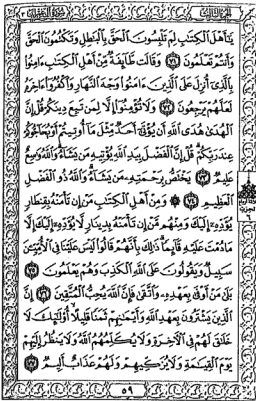 يَٰٓأَهْلَ ٱلْكِتَٰبِ لِمَ تَلْبِسُونَ ٱلْحَقَّ بِٱلْبَٰطِلِ وَتَكْتُمُونَ ٱلْحَقَّ
وَأَنتُمْ تَعْلَمُونَ ٧١ وَقَالَت طَّآئِفَةٌ مِّنْ أَهْلِ ٱلْكِتَٰبِ ءَامِنُوا۟
بِٱلَّذِىٓ أُنزِلَ عَلَى ٱلَّذِينَ ءَامَنُوا۟ وَجْهَ ٱلنَّهَارِ وَٱكْفُرُوٓا۟ ءَاخِرَهُۥ
لَعَلَّهُمْ يَرْجِعُونَ ٧٢ وَلَا تُؤْمِنُوٓا۟ إِلَّا لِمَن تَبِعَ دِينَكُمْ قُلْ إِنَّ
ٱلْهُدَىٰ هُدَى ٱللَّهِ أَن يُؤْتَىٰٓ أَحَدٌ مِّثْلَ مَآ أُوتِيتُمْ أَوْ يُحَآجُّوكُمْ
عِندَ رَبِّكُمْ قُلْ إِنَّ ٱلْفَضْلَ بِيَدِ ٱللَّهِ يُؤْتِيهِ مَن يَشَآءُ وَٱللَّهُ وَٰسِعٌ
عَلِيمٌ ٧٣ يَخْتَصُّ بِرَحْمَتِهِۦ مَن يَشَآءُ وَٱللَّهُ ذُو ٱلْفَضْلِ
ٱلْعَظِيمِ ٧٤ وَمِنْ أَهْلِ ٱلْكِتَٰبِ مَنْ إِن تَأْمَنْهُ بِقِنطَارٍ
يُؤَدِّهِۦٓ إِلَيْكَ وَمِنْهُم مَّنْ إِن تَأْمَنْهُ بِدِينَارٍ لَّا يُؤَدِّهِۦٓ إِلَيْكَ إِلَّا
مَا دُمْتَ عَلَيْهِ قَآئِمًا ذَٰلِكَ بِأَنَّهُمْ قَالُوا۟ لَيْسَ عَلَيْنَا فِى ٱلْأُمِّيِّۦنَ
سَبِيلٌ وَيَقُولُونَ عَلَى ٱللَّهِ ٱلْكَذِبَ وَهُمْ يَعْلَمُونَ ٧٥
بَلَىٰ مَنْ أَوْفَىٰ بِعَهْدِهِۦ وَٱتَّقَىٰ فَإِنَّ ٱللَّهَ يُحِبُّ ٱلْمُتَّقِينَ ٧٦ إِنَّ
ٱلَّذِينَ يَشْتَرُونَ بِعَهْدِ ٱللَّهِ وَأَيْمَٰنِهِمْ ثَمَنًا قَلِيلًا أُو۟لَٰٓئِكَ لَا
خَلَٰقَ لَهُمْ فِى ٱلْءَاخِرَةِ وَلَا يُكَلِّمُهُمُ ٱللَّهُ وَلَا يَنظُرُ إِلَيْهِمْ
يَوْمَ ٱلْقِيَٰمَةِ وَلَا يُزَكِّيهِمْ وَلَهُمْ عَذَابٌ أَلِيمٌ ٧٧
٥٩